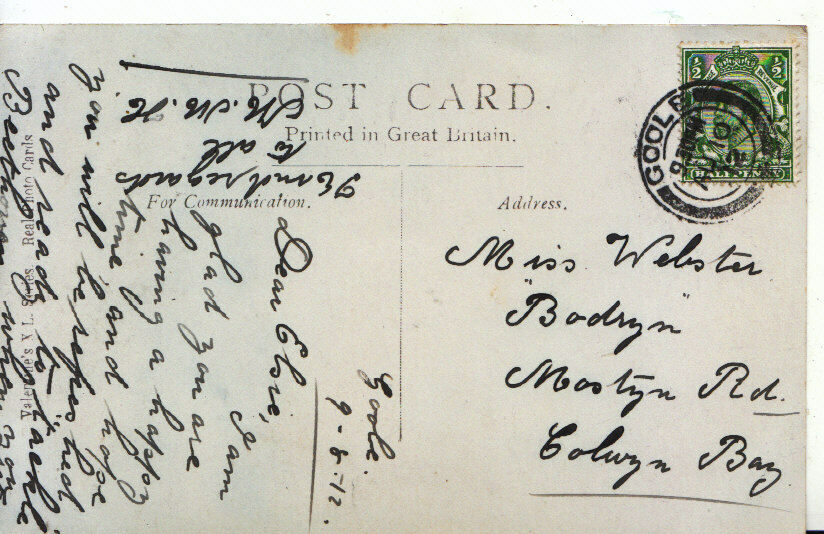 POST CARD.
Printed in Great Britain.
For Communication.
Address.
½ ½
HALFPENNY
GOOLE
Miss Webster
"Bodryn"
Mostyn Rd.
Colwyn Bay
Goole.
9-8-12.
Dear Elsie,
I am
glad you are
having a happy
time, and hope
you will be refreshed
and ready to tackle
when you
Kind regards
to all
Valentine's X L. Series Real Photo Cards